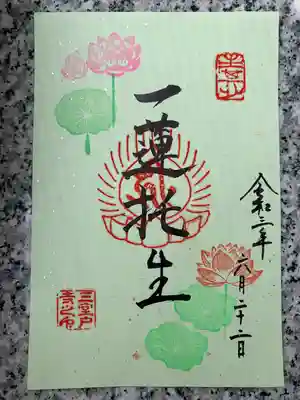 一蓮托生
令和三年
六月二十二日
三室戸